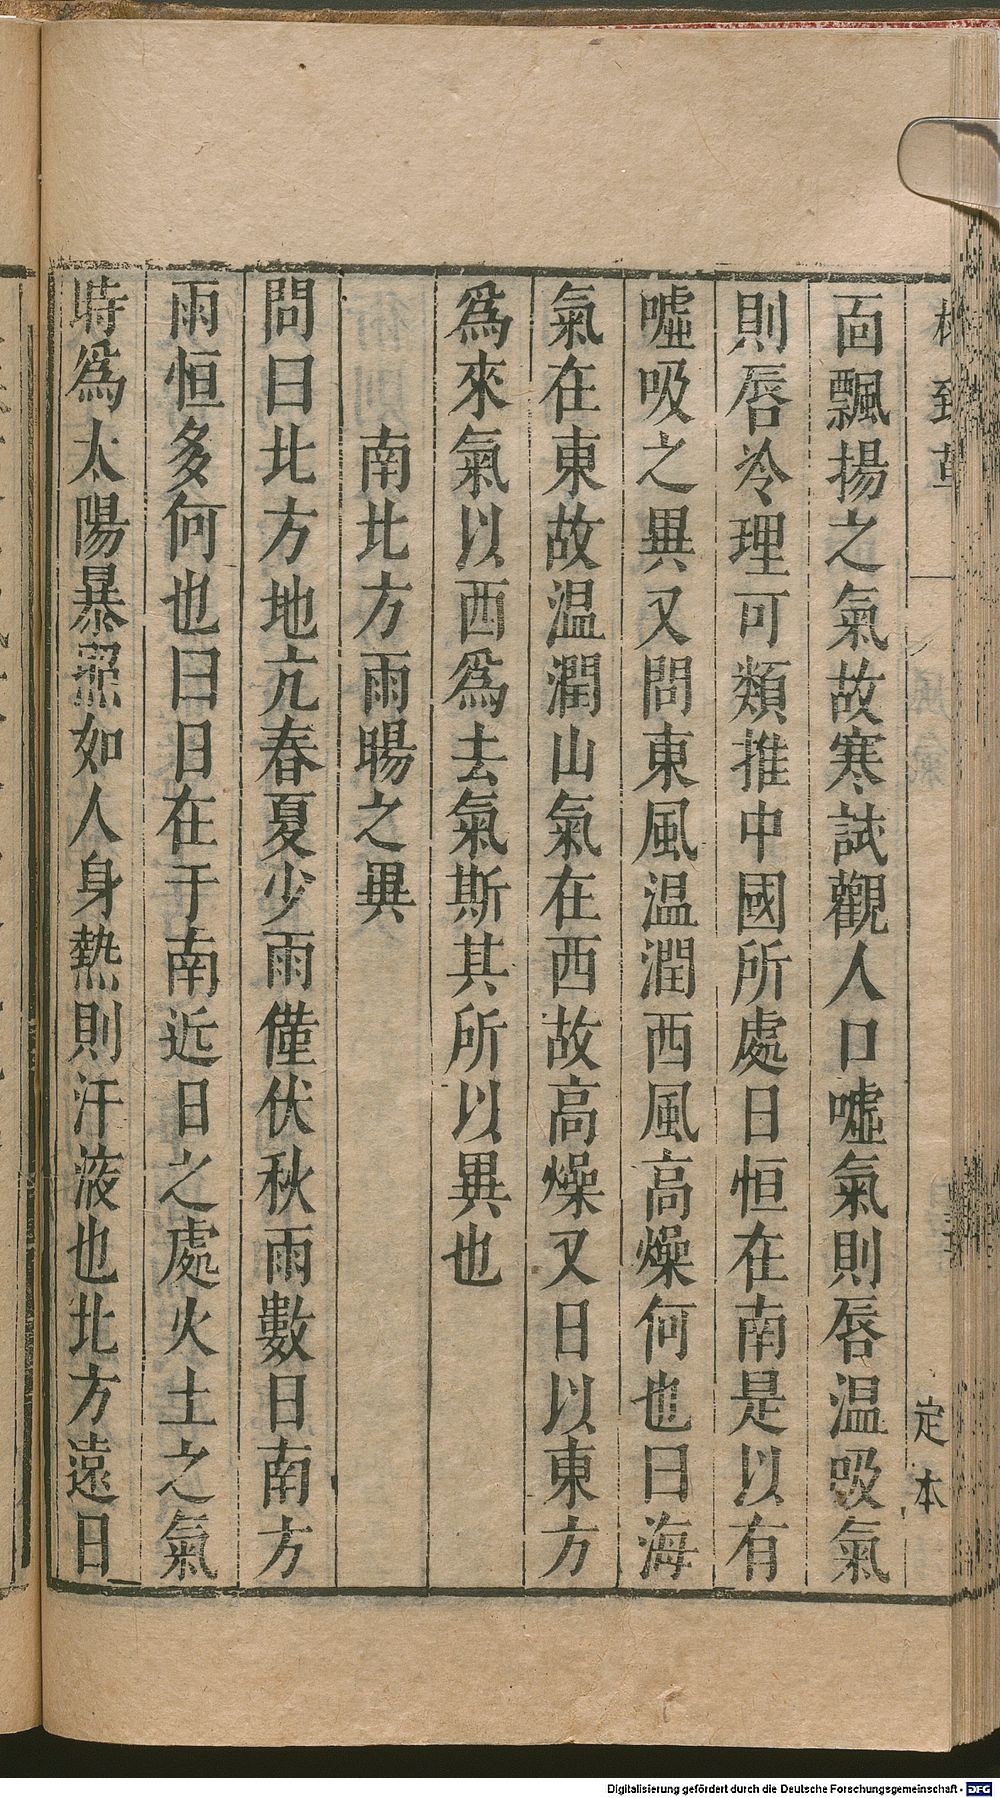 定本
面飄揚之氣故寒試觀人口噓氣則唇温吸氣
則唇冷理可類推中國所處日恒在南是以有
噓吸之異又問東風温潤西風高燥何也曰海
氣在東故温潤山氣在西故高燥又日以東方
爲來氣以西爲去氣斯其所以異也
南北方雨暘之異
問曰北方地亢春夏少雨僅伏秋雨數日南方
雨恒多何也曰日在于南近日之處火土之氣
時爲太陽暴照如人身熱則汗液也北方遠日
Digitalisierung gefördert durch die Deutsche Forschungsgemeinschaft - DFG